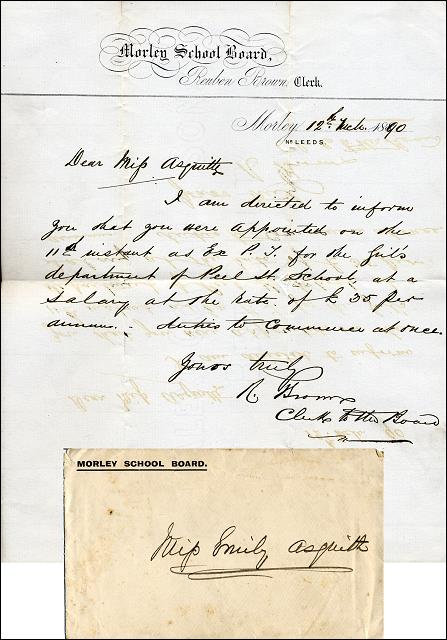 Morley School Board,
Reuben Brown, Clerk.
Morley 12th Mch. 1890.
Nr LEEDS.
Dear Miss Asquith
I am directed to inform
you that you were appointed on the
11th instant as Ex P. T. for the Girl's
department of Peel St. School, at a
salary at the rate of £35 per
annum. - duties to Commence at once.
Yours truly
R. Brown
Clerk to the Board
MORLEY SCHOOL BOARD.
Miss Emily Asquith